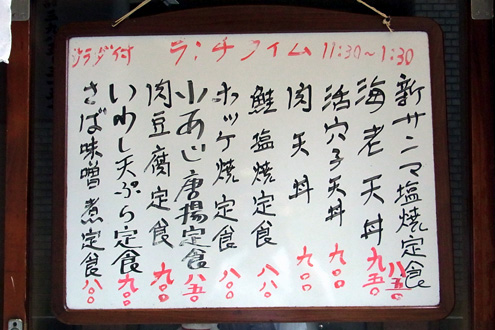 サラダ付 ランチタイム 11:30~1:30
新サンマ塩焼定食 八五〇
海老天丼 九五〇
活穴子天丼 九〇〇
肉天丼 九〇〇
鮭塩焼定食 八八〇
ホッケ焼定食 八〇〇
小あじ唐揚定食 八五〇
肉豆腐定食 九〇〇
いわし天ぷら定食 九〇〇
さば味噌煮定食 八〇〇